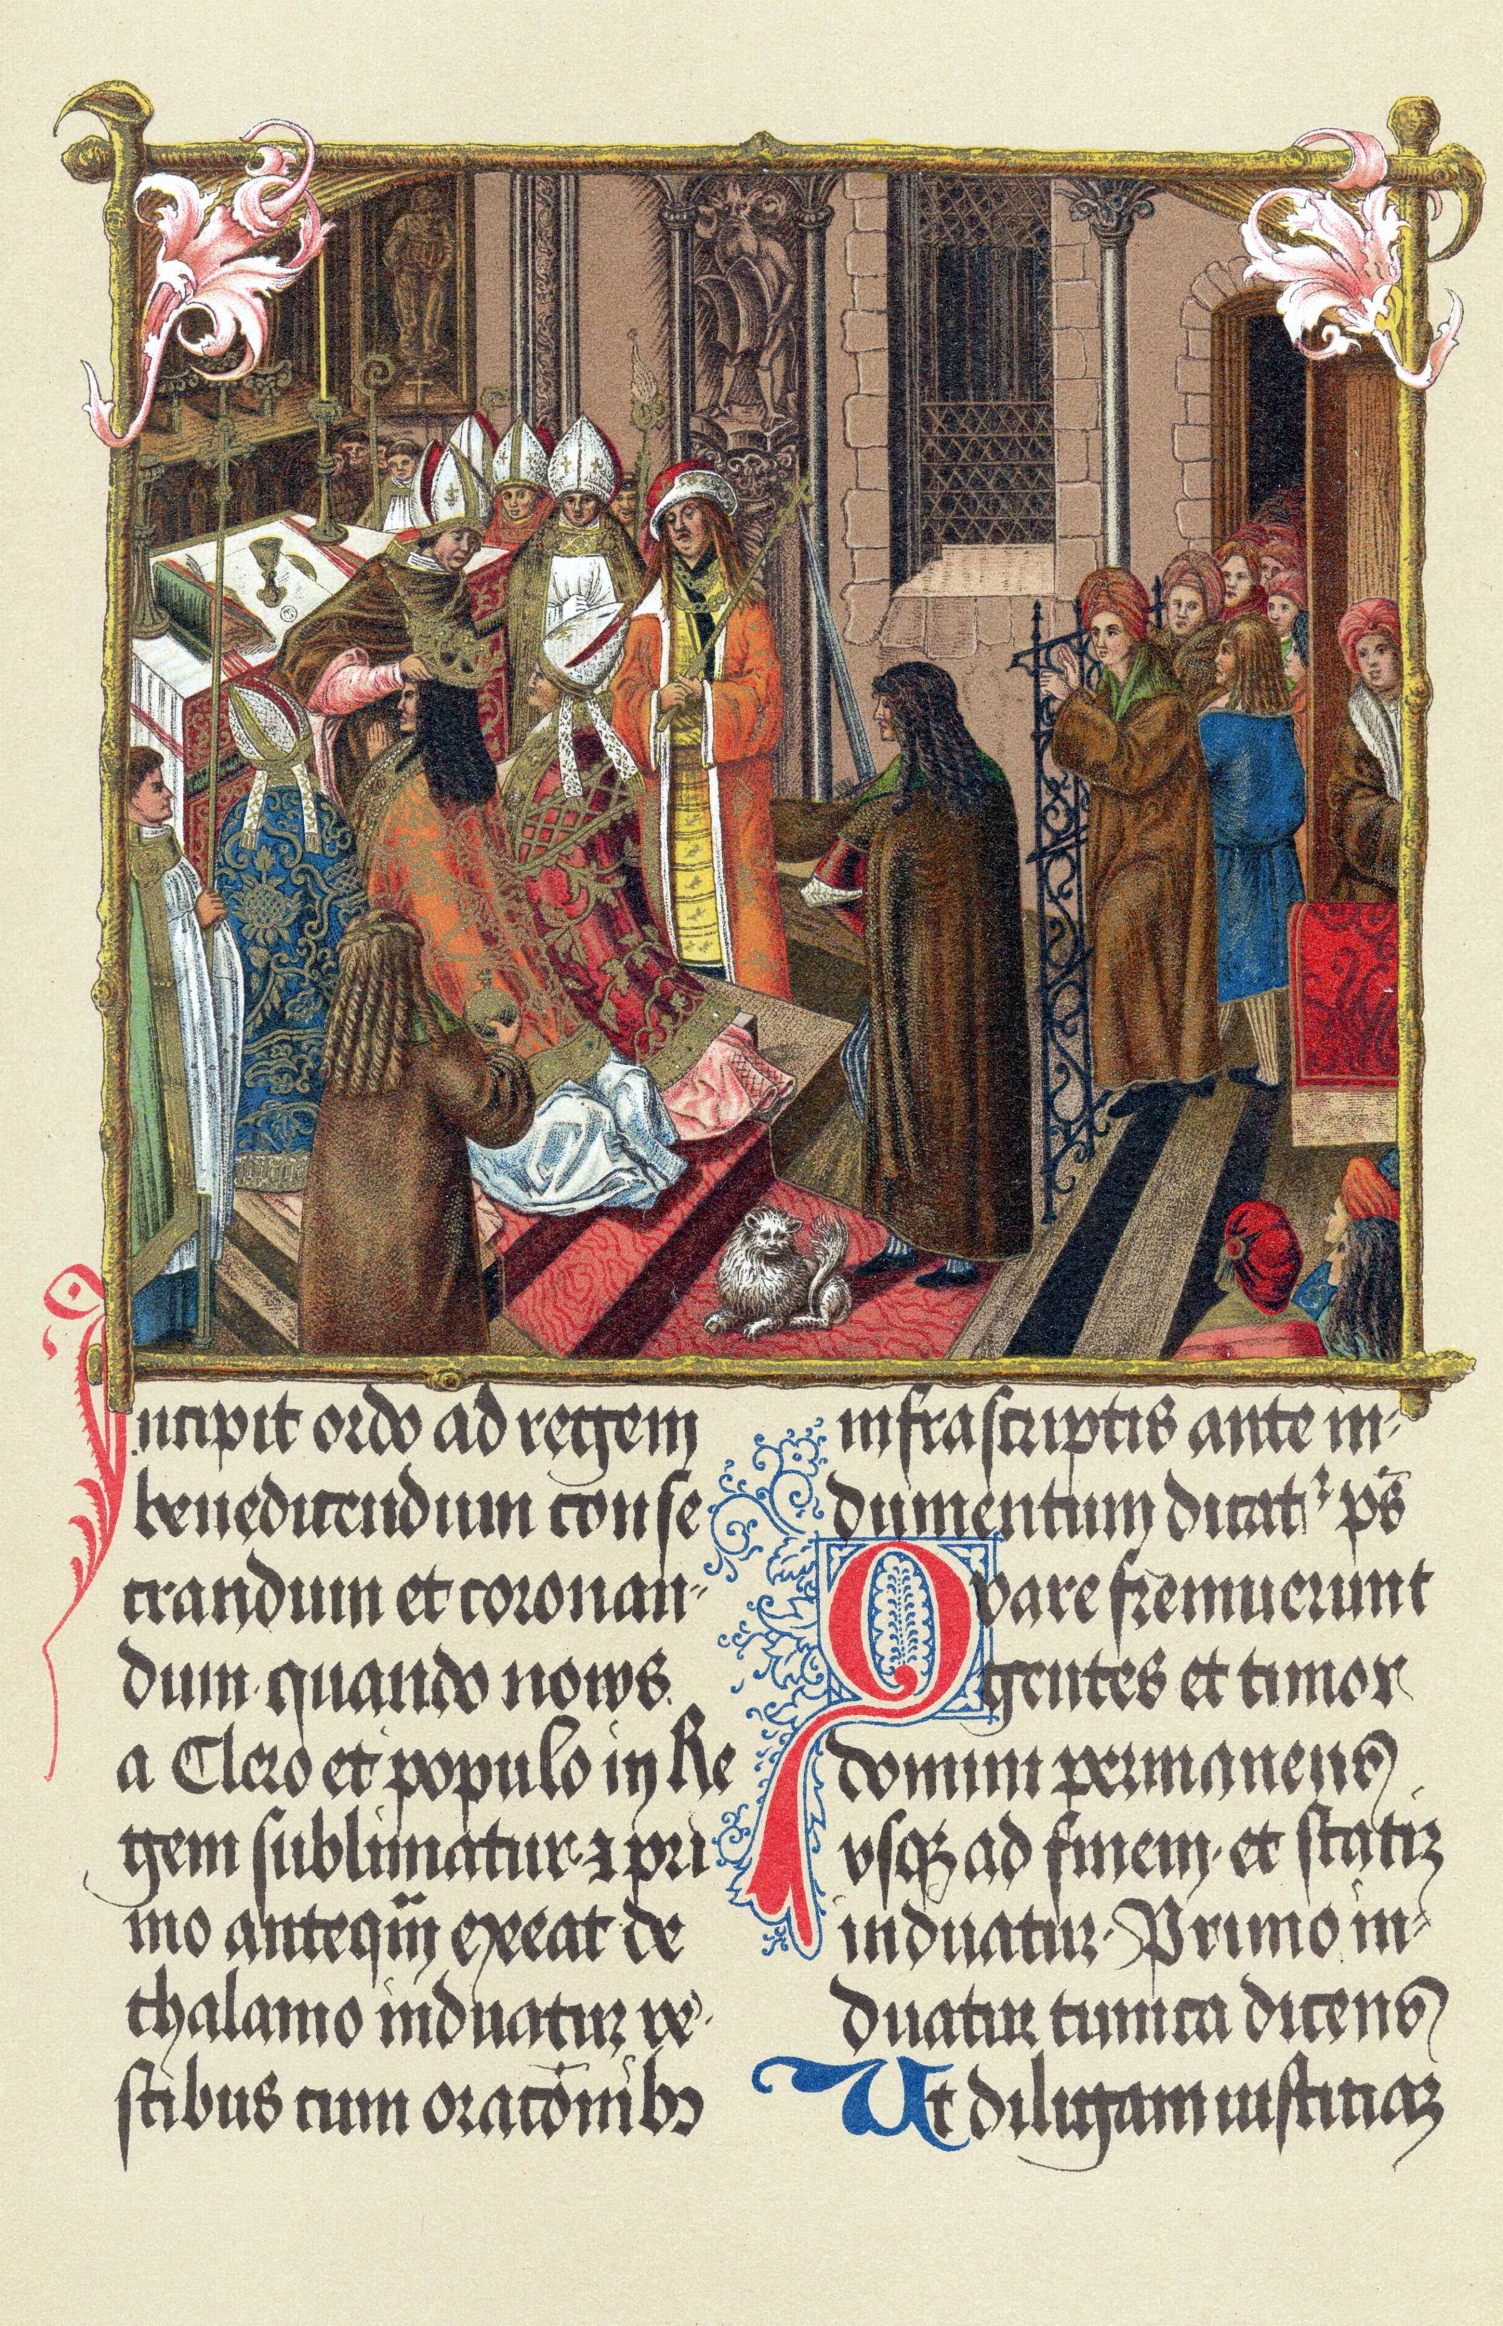 Incipit ordo ad regem
benedicendum conse
crandum et coronan-
dum quando nouus
a Clero et populo in Re
gem sublimatur ⁊ pri
mo anteqm̄ exeat de
thalamo induatur ve-
stibus cum oracōnibꝫ
infrascriptis ante in-
dumentum dicatr ps̄
Quare fremuerunt
gentes et timor
domini permanens
vsqꝫ ad finem et statiꝫ
induatur. Primo in-
duatur tunica dicens
Ut diligam iusticiaꝫ